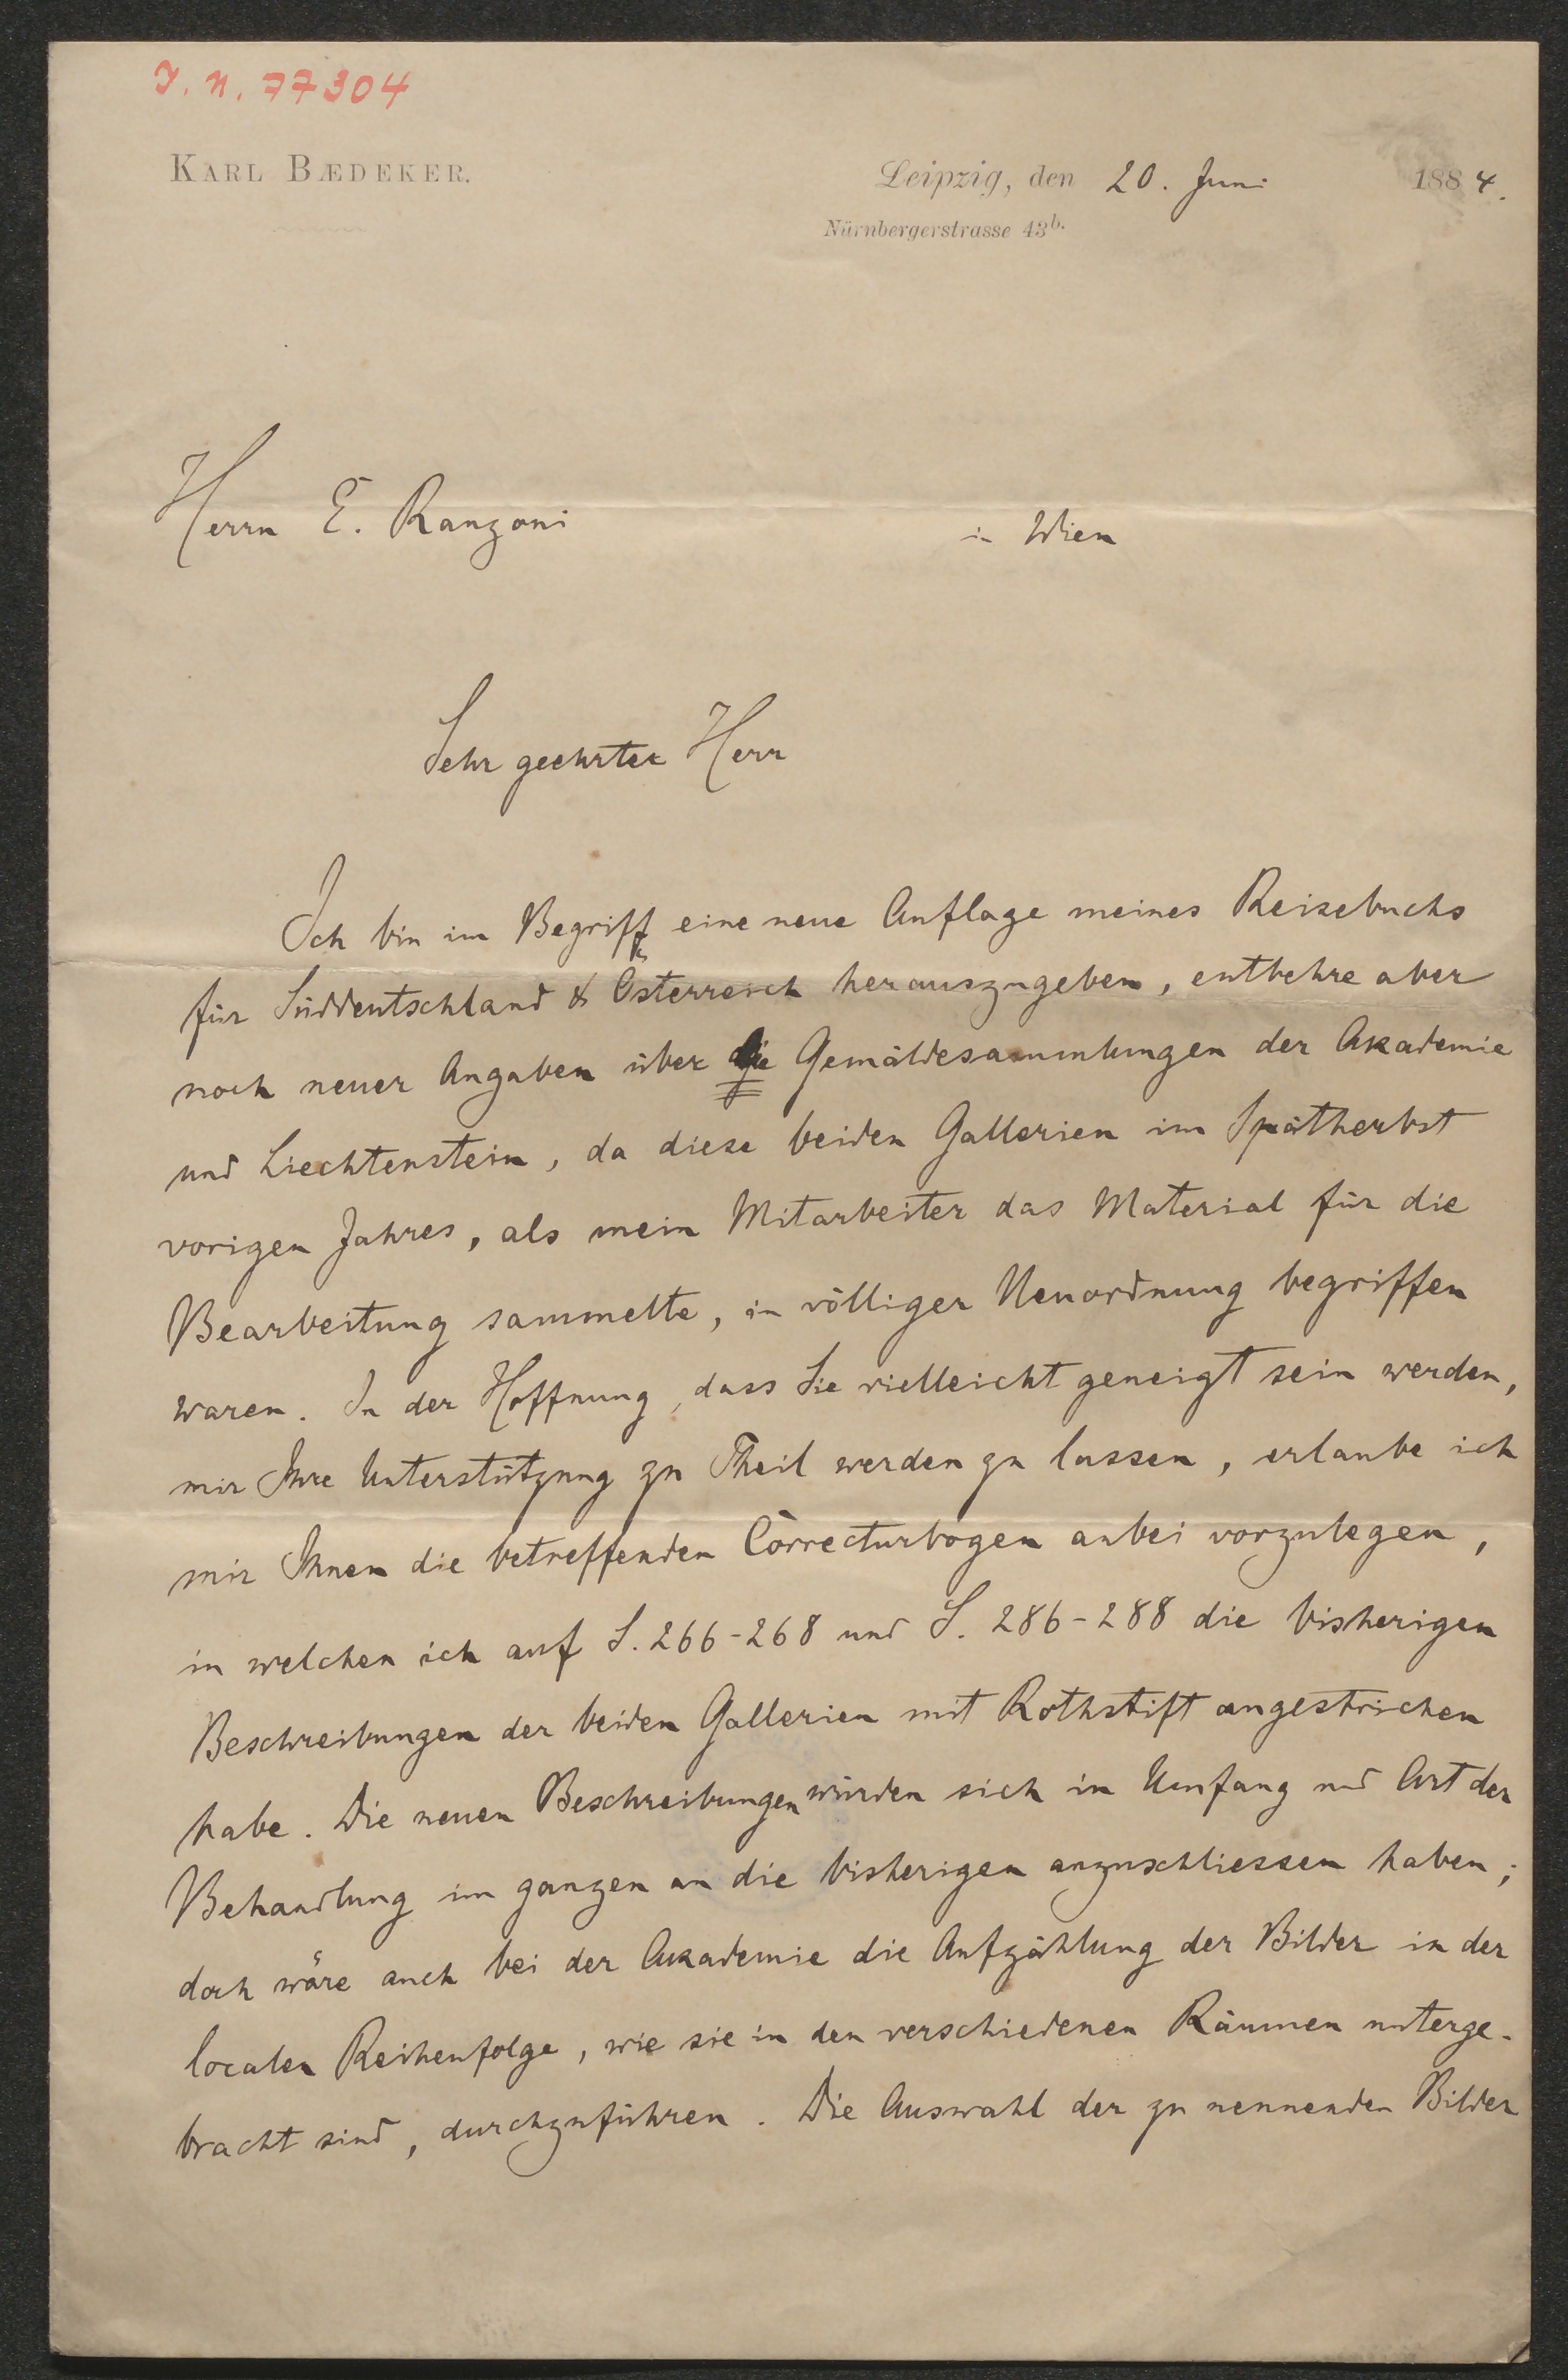 J. N. 77304
KARL BÆDEKER.
Leipzig, den 20. Juni 1884.
Nürnbergerstrasse 43b.
Herrn E. Ranzoni
in Wien
Sehr geehrter Herr
Ich bin im Begriff eine neue Auflage meines Reisebuchs
für Süddeutschland & Österreich herauszugeben, entbehre aber
noch neuer Angaben über die Gemäldesammlungen der Akademie
und Liechtenstein, da diese beiden Gallerien im Spätherbst
vorigen Jahres, als mein Mitarbeiter das Material für die
Bearbeitung sammelte, in völliger Neuordnung begriffen
waren. In der Hoffnung, dass Sie vielleicht geneigt sein werden,
mir Ihre Unterstützung zu Theil werden zu lassen, erlaube ich
mir Ihnen die betreffenden Correcturbogen anbei vorzulegen,
in welchen ich auf S. 266-268 und S. 286-288 die bisherigen
Beschreibungen der beiden Gallerien mit Rothstift angestrichen
habe. Die neuen Beschreibungen würden sich in Umfang und Art der
Behandlung im ganzen an die bisherigen anzuschliessen haben;
doch wäre auch bei der Akademie die Aufzählung der Bilder in der
localen Reihenfolge, wie sie in den verschiedenen Räumen unterge-
bracht sind, durchzuführen. Die Auswahl der zu nennenden Bilder